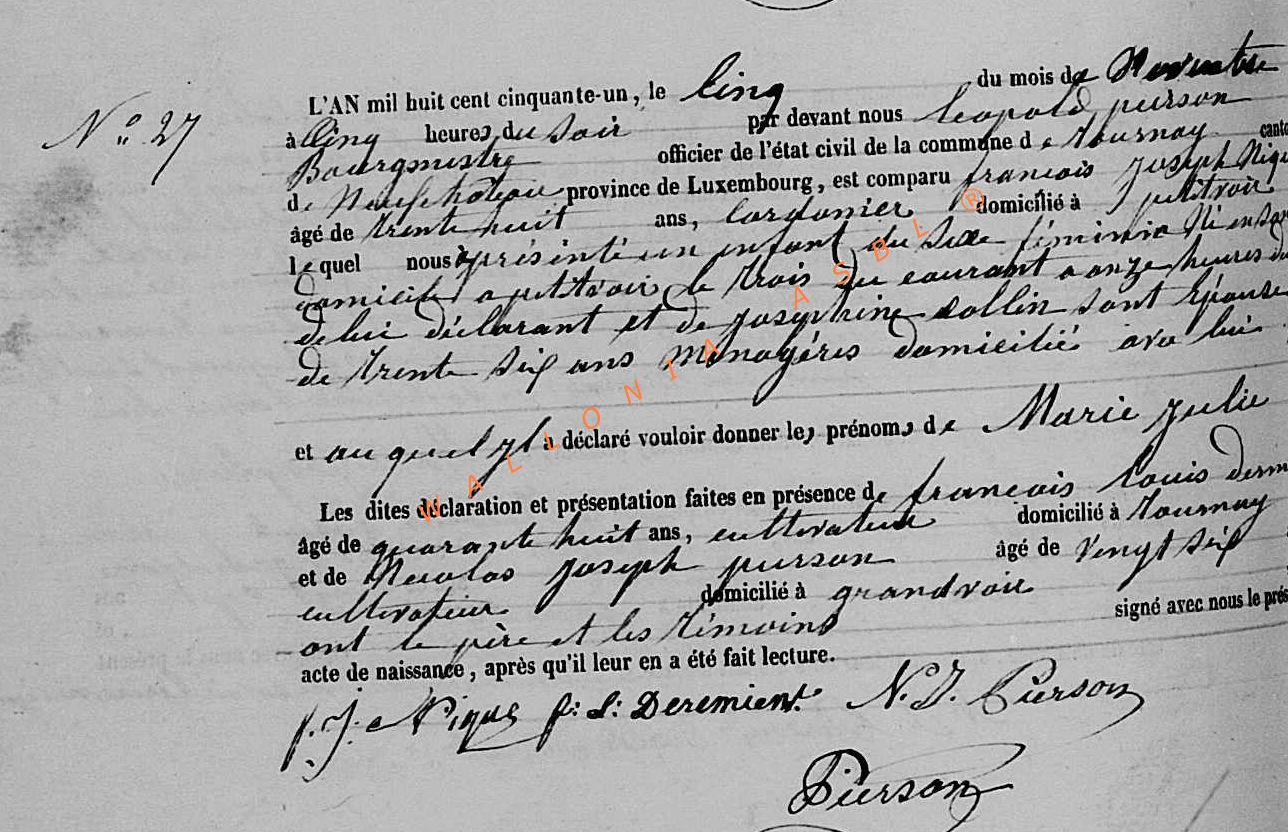 N° 27
L'AN mil huit cent cinquante-un, le Cinq du mois de Novembre
à Cinq heures du soir par devant nous Leopold pierson
Bourgmestre officier de l'état civil de la commune de tournay canto
de Neufchateau province de Luxembourg, est comparu francois Joseph Niqu
âgé de trente huit ans, Cordonier domicilié à petitvoir
lequel nous à présenté un enfant du sexe féminin Né en son
domicile a petitvoir le trois du courant a onze heures du
de lui déclarant et de josephine collin sont épouse
de trente six ans Menagéres domicilié avec lui
et au quel jl a déclaré vouloir donner les prénoms de Marie julie
Les dites déclaration et présentation faites en présence de francois Louis
âgé de quarante huit ans, cultivateur domicilié à tournay
et de Nicolas joseph pierson âgé de vingt six
cultivateur domicilié à grandvoir
ont le père et les témoins signé avec nous le prés
acte de naissance, après qu'il leur en a été fait lecture.
f. J. Nique f: L: Deremient. N. J. Pierson
Pierson
WALLONIA ASBL ®